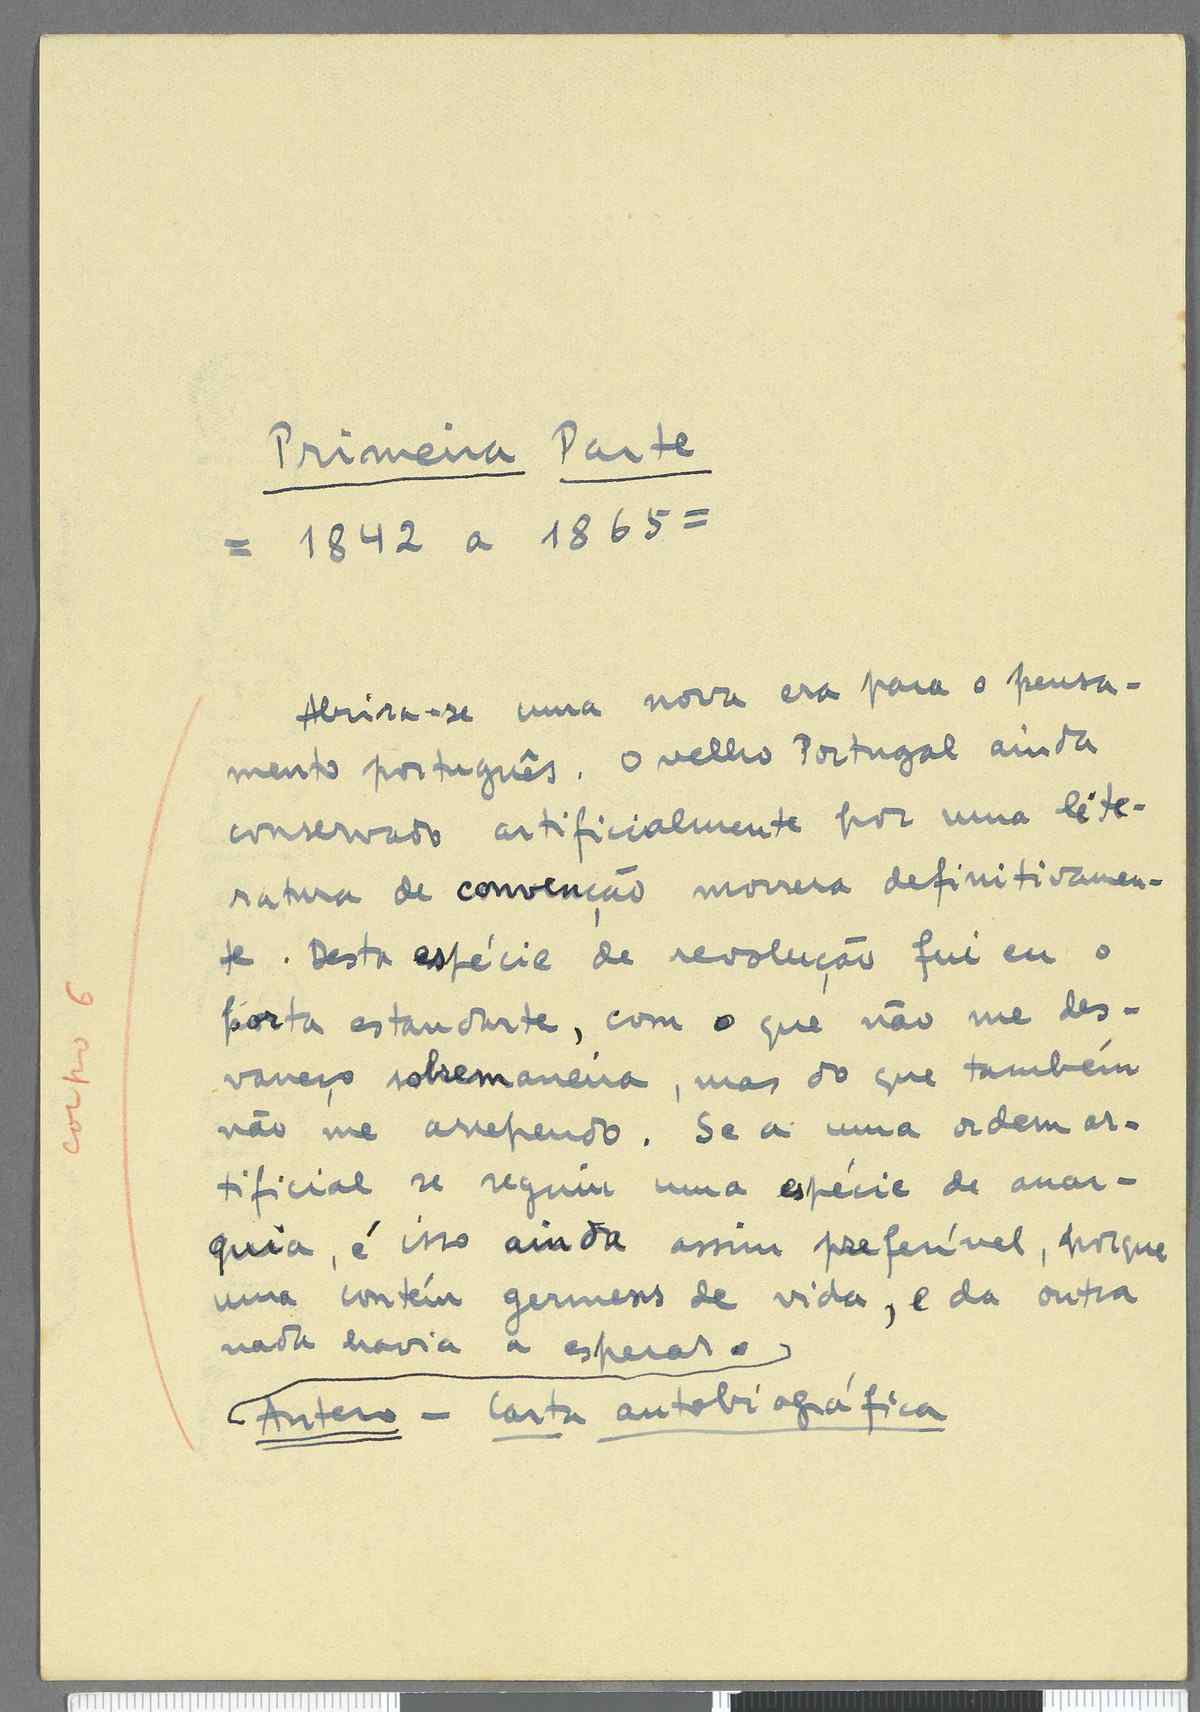 Primeira Parte
= 1842 a 1865 =
Abrira-se uma nova era para o pensa-
mento português. O velho Portugal ainda
conservado artificialmente por uma lite-
ratura de convenção morrera definitivamen-
te. Desta espécie de revolução fui eu o
porta estandarte, com o que não me des-
vaneço sobremaneira, mas do que também
não me arrependo. Se a uma ordem ar-
tificial se seguiu uma espécie de anar-
quia, é isso ainda assim preferível, porque
uma contém germens de vida, e da outra
nada havia a esperar.
Antero - Carta autobiográfica
corpo 6